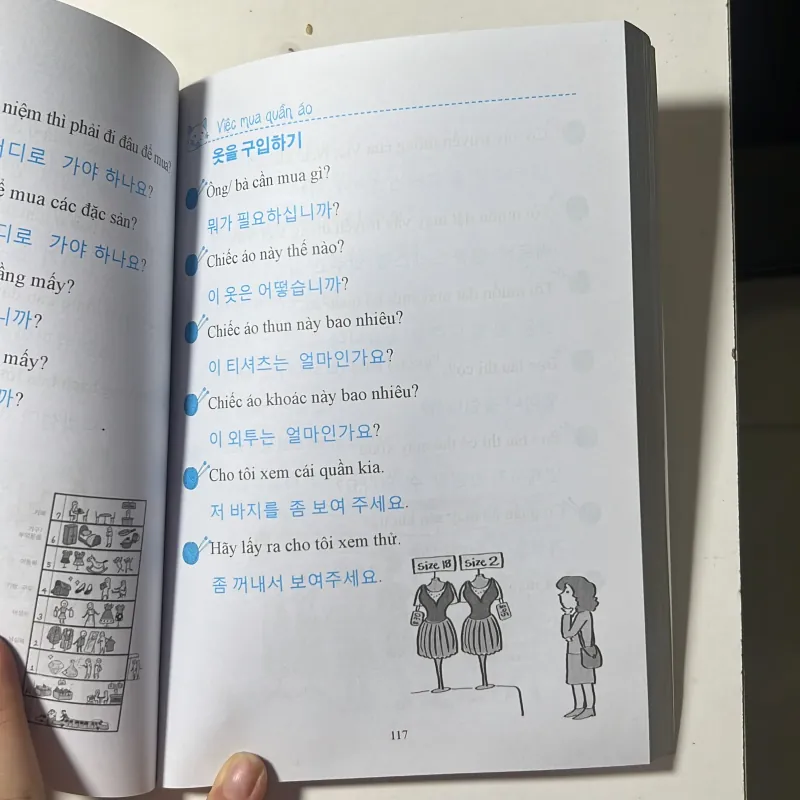 niệm thì phải đi đâu để mua?
디로 가야 하나요?
mua các đặc sản?
디로 가야 하나요?
mấy?
니까?
mấy?
까?
7
6
5
4
3
1
1
Việc mua quần áo
옷을 구입하기
Ông/ bà cần mua gì?
뭐가 필요하십니까?
Chiếc áo này thế nào?
이 옷은 어떻습니까?
Chiếc áo thun này bao nhiêu?
이 티셔츠는 얼마인가요?
Chiếc áo khoác này bao nhiêu?
이 외투는 얼마인가요?
Cho tôi xem cái quần kia.
저 바지를 좀 보여 주세요.
Hãy lấy ra cho tôi xem thử.
좀 꺼내서 보여주세요.
size 18 size 2
117